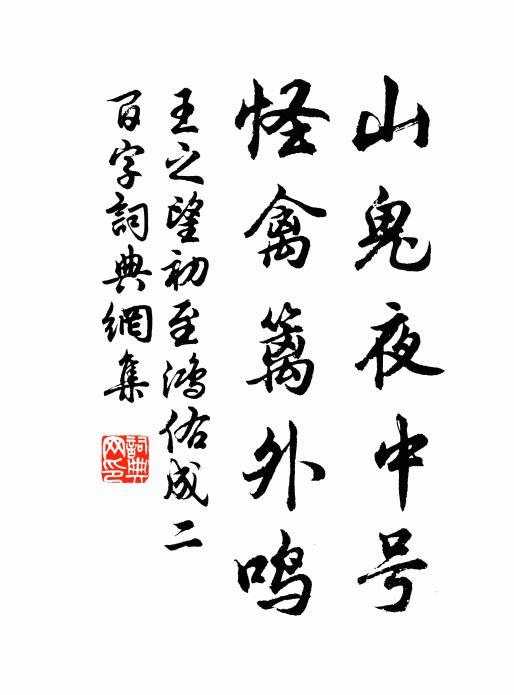 山鬼夜中号
怪禽篱外鸣
王之望初至鸿佑成二
百字詞典網集
詞典网印